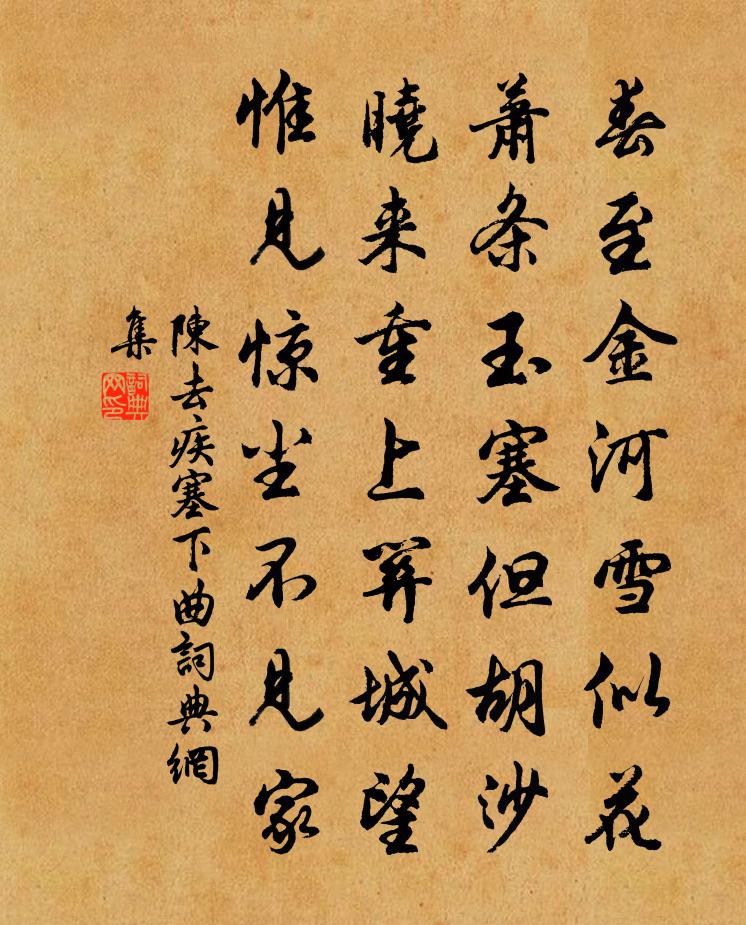 春至金河雪似花
萧条玉塞但胡沙
晓来重上关城望
惟见惊尘不见家
陳去疾塞下曲詞典網
集
詞典
网印